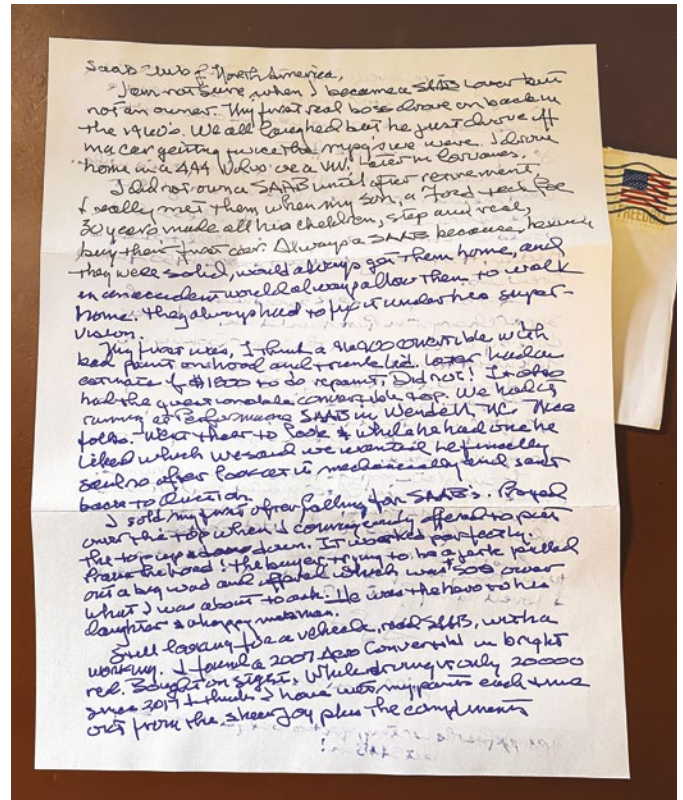 Saab Club of North America,
I am not sure when I became a SAAB lover but
not an owner. My first real boss drove one back in
the 1960's. We all laughed but he just drove off
in a car getting twice the mpg's we were. I drove
home in a 444 Volvo or a VW. Later in
I did not own a SAAB until after retirement.
I really met them when my son, a Ford tech for
30 years made all his children, step and real,
buy their first car. Always a SAAB because,
they were solid, would always get them home, and
in an accident would always allow them to walk
home. They always had to fix it under his super-
vision.
My first was, I think a 900 convertible with
bad paint on hood and trunk lid. Later had an
estimate of $1800 to do repaint. Did not! It also
had the questionable convertible top. We had it
running at Performance SAAB in Wendell, NC. Nice
folks. Went there to look & while he had one he
liked which we said we wanted he finally
said no after look at it mechanically and sent
back to auction.
I sold my first after falling for SAAB's. Prayed
over the top when I offered to put
the top up & down. It worked perfectly.
Praise the Lord! The buyer trying to be a jerk pulled
out a big wad and offered which was 500 over
what I was about to ask. He was the hero to his
daughter & a happy
Still looking for a vehicle, read SAAB, with a
working. I found a 2007 Aero Convertible in bright
red. Bought on sight. While driving is only 20000
since 2017 I think I have wet my pants each time
out from the sheer joy plus the compliments
!
FREEDOM